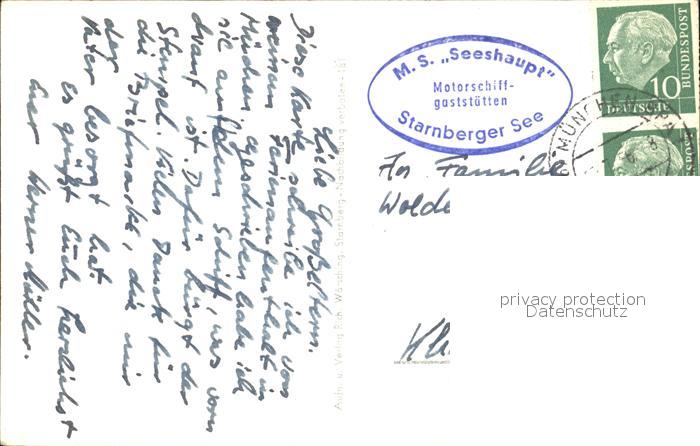 Liebe Großeltern.
Diese Karte schreibe ich von
meinem Ferienaufenthalt in
München. Geschrieben habe ich
sie auf dem Schiff, was vorn
drauf ist. Dafür bürgt der
Stempel. Vielen Dank für
die Briefmarke, die mir
der Vater besorgt hat.
Es grüßt Euch herzlichst
Euer Werner Müller.
Aufn. u. Verlag Rich. Wörsching, Starnberg - Nachahmung verboten - 181
M. S. „Seeshaupt"
Motorschiff-
gaststätten
Starnberger See
10
DEUTSCHE
BUNDESPOST
MÜNCHEN
An Familie
Wolde
privacy protection
Datenschutz